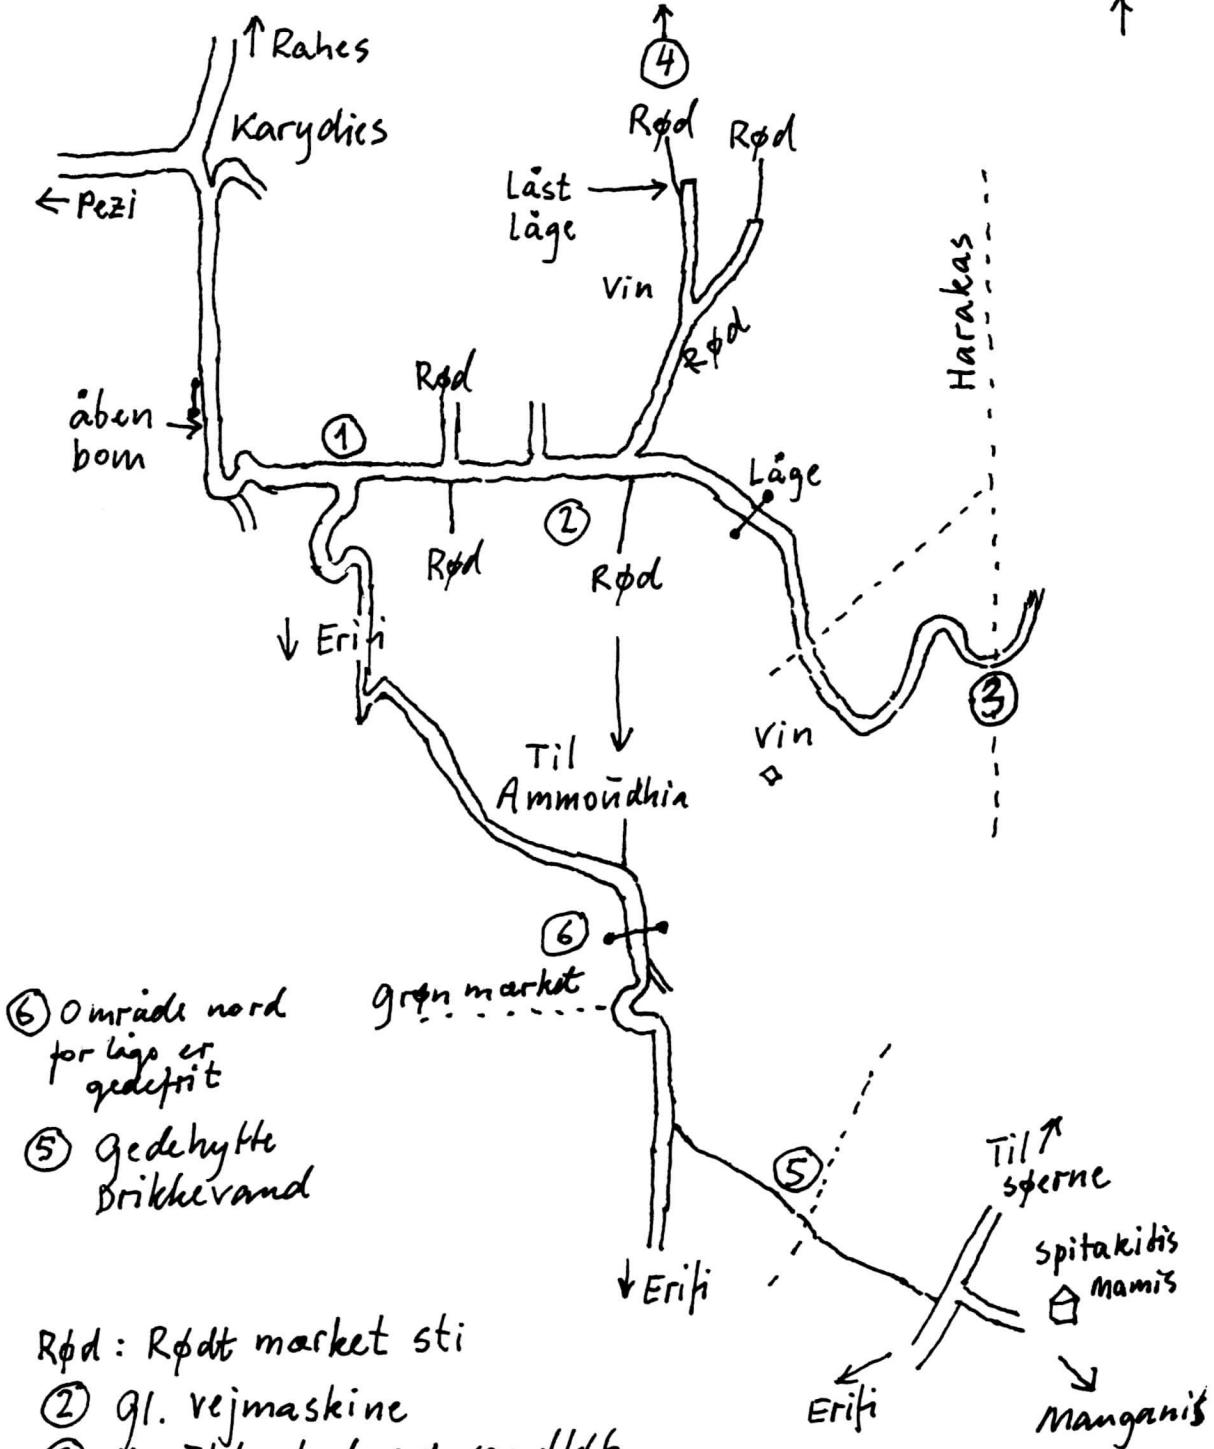 ↑ Rahes
Karydies
← Pezi
4
Rød
Rød
Låst
låge
Vin
Rød
Harakas
Rød
åben
bom
1
Låge
2
Rød
Rød
↓ Erifi
3
Vin
Til
Ammoŭdhia
6
Grøn mærket
6 Område nord
for låge er
gedefrit
5 Gedehytte
Drikkevand
5
Til
søerne
Spitakidis
Mamis
↓ Erifi
Rød: Rødt mærket sti
2 gl. vejmaskine
Erifi
Manganis